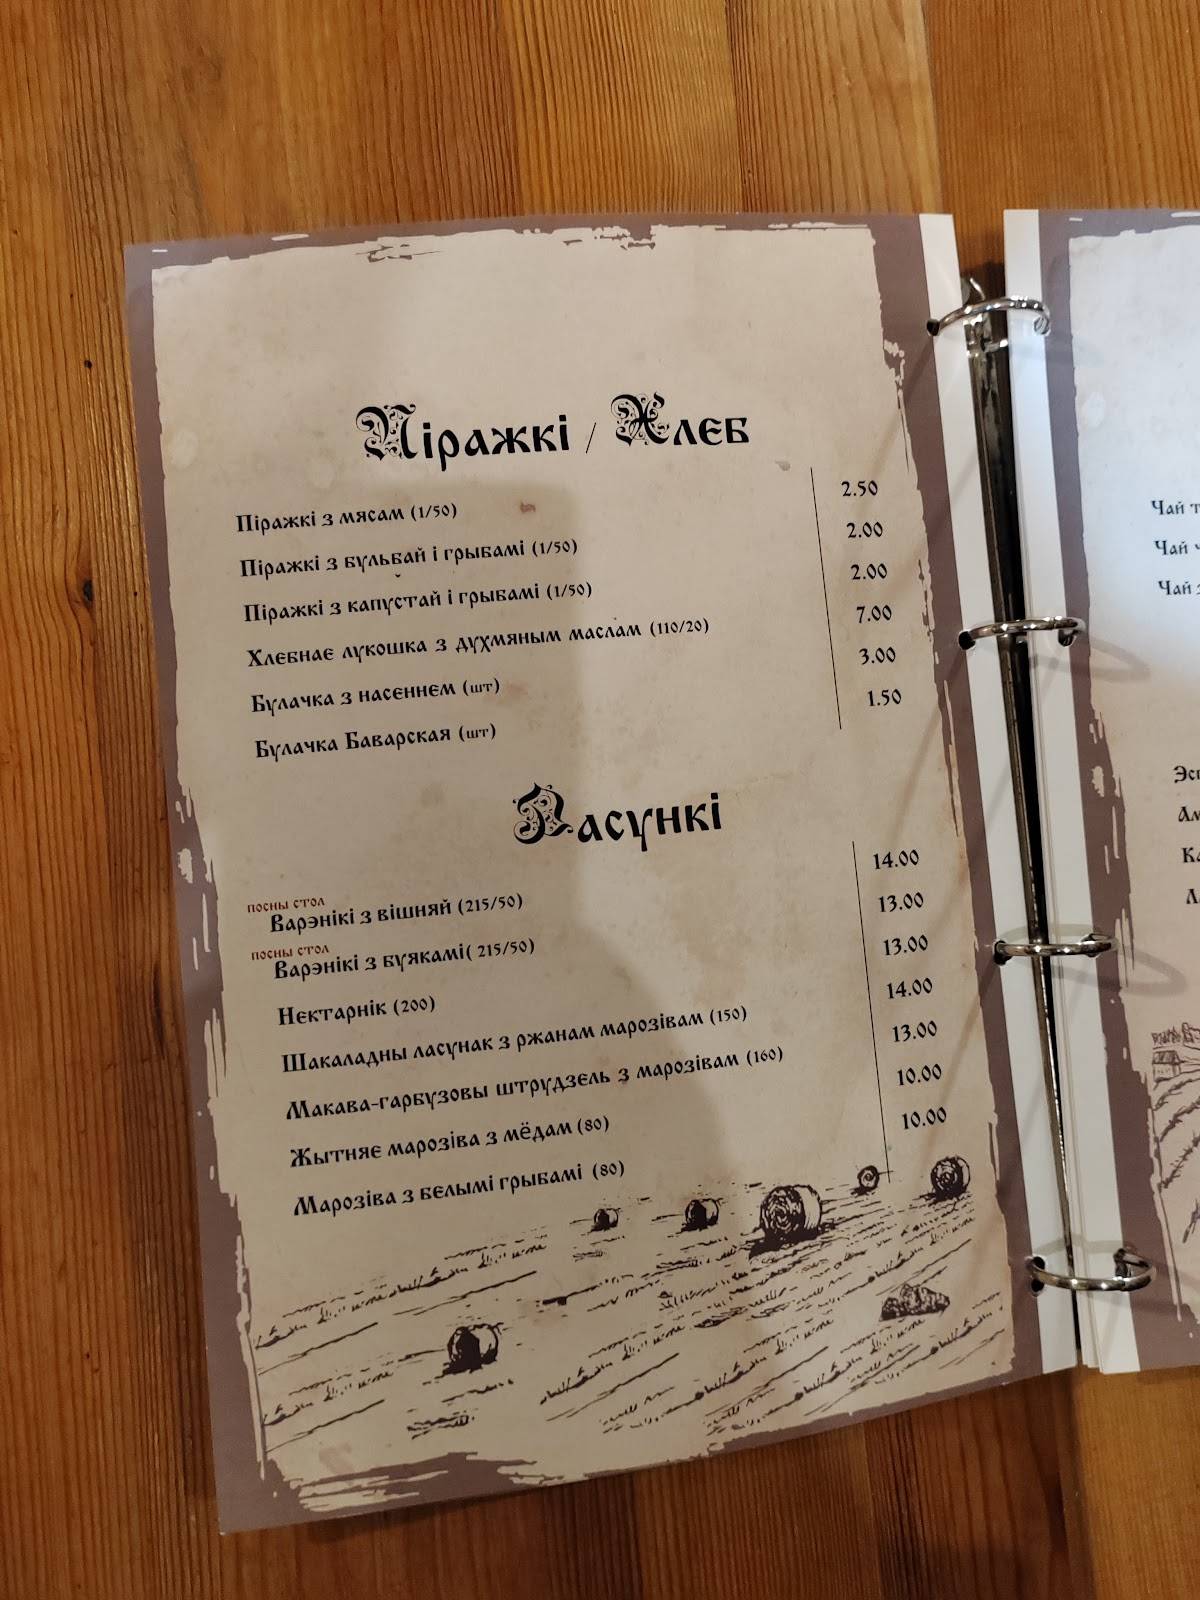 Піражкі / Хлеб
Піражкі з мясам (1/50) 2.50
Піражкі з бульбай і грыбамі (1/50) 2.00
Піражкі з капустай і грыбамі (1/50) 2.00
Хлебнае лукошка з духмяным маслам (110/20) 7.00
Булачка з насеннем (шт) 3.00
Булачка Баварская (шт) 1.50
Ласункі
посны стол
Варэнікі з вішняй (215/50) 14.00
посны стол
Варэнікі з буякамі( 215/50) 13.00
Нектарнік (200) 13.00
Шакаладны ласунак з ржанам марозівам (150) 14.00
Макава-гарбузовы штрудзель з марозівам (160) 13.00
Жытняе марозіва з мёдам (80) 10.00
Марозіва з белымі грыбамі (80) 10.00
Чай
Чай
Чай